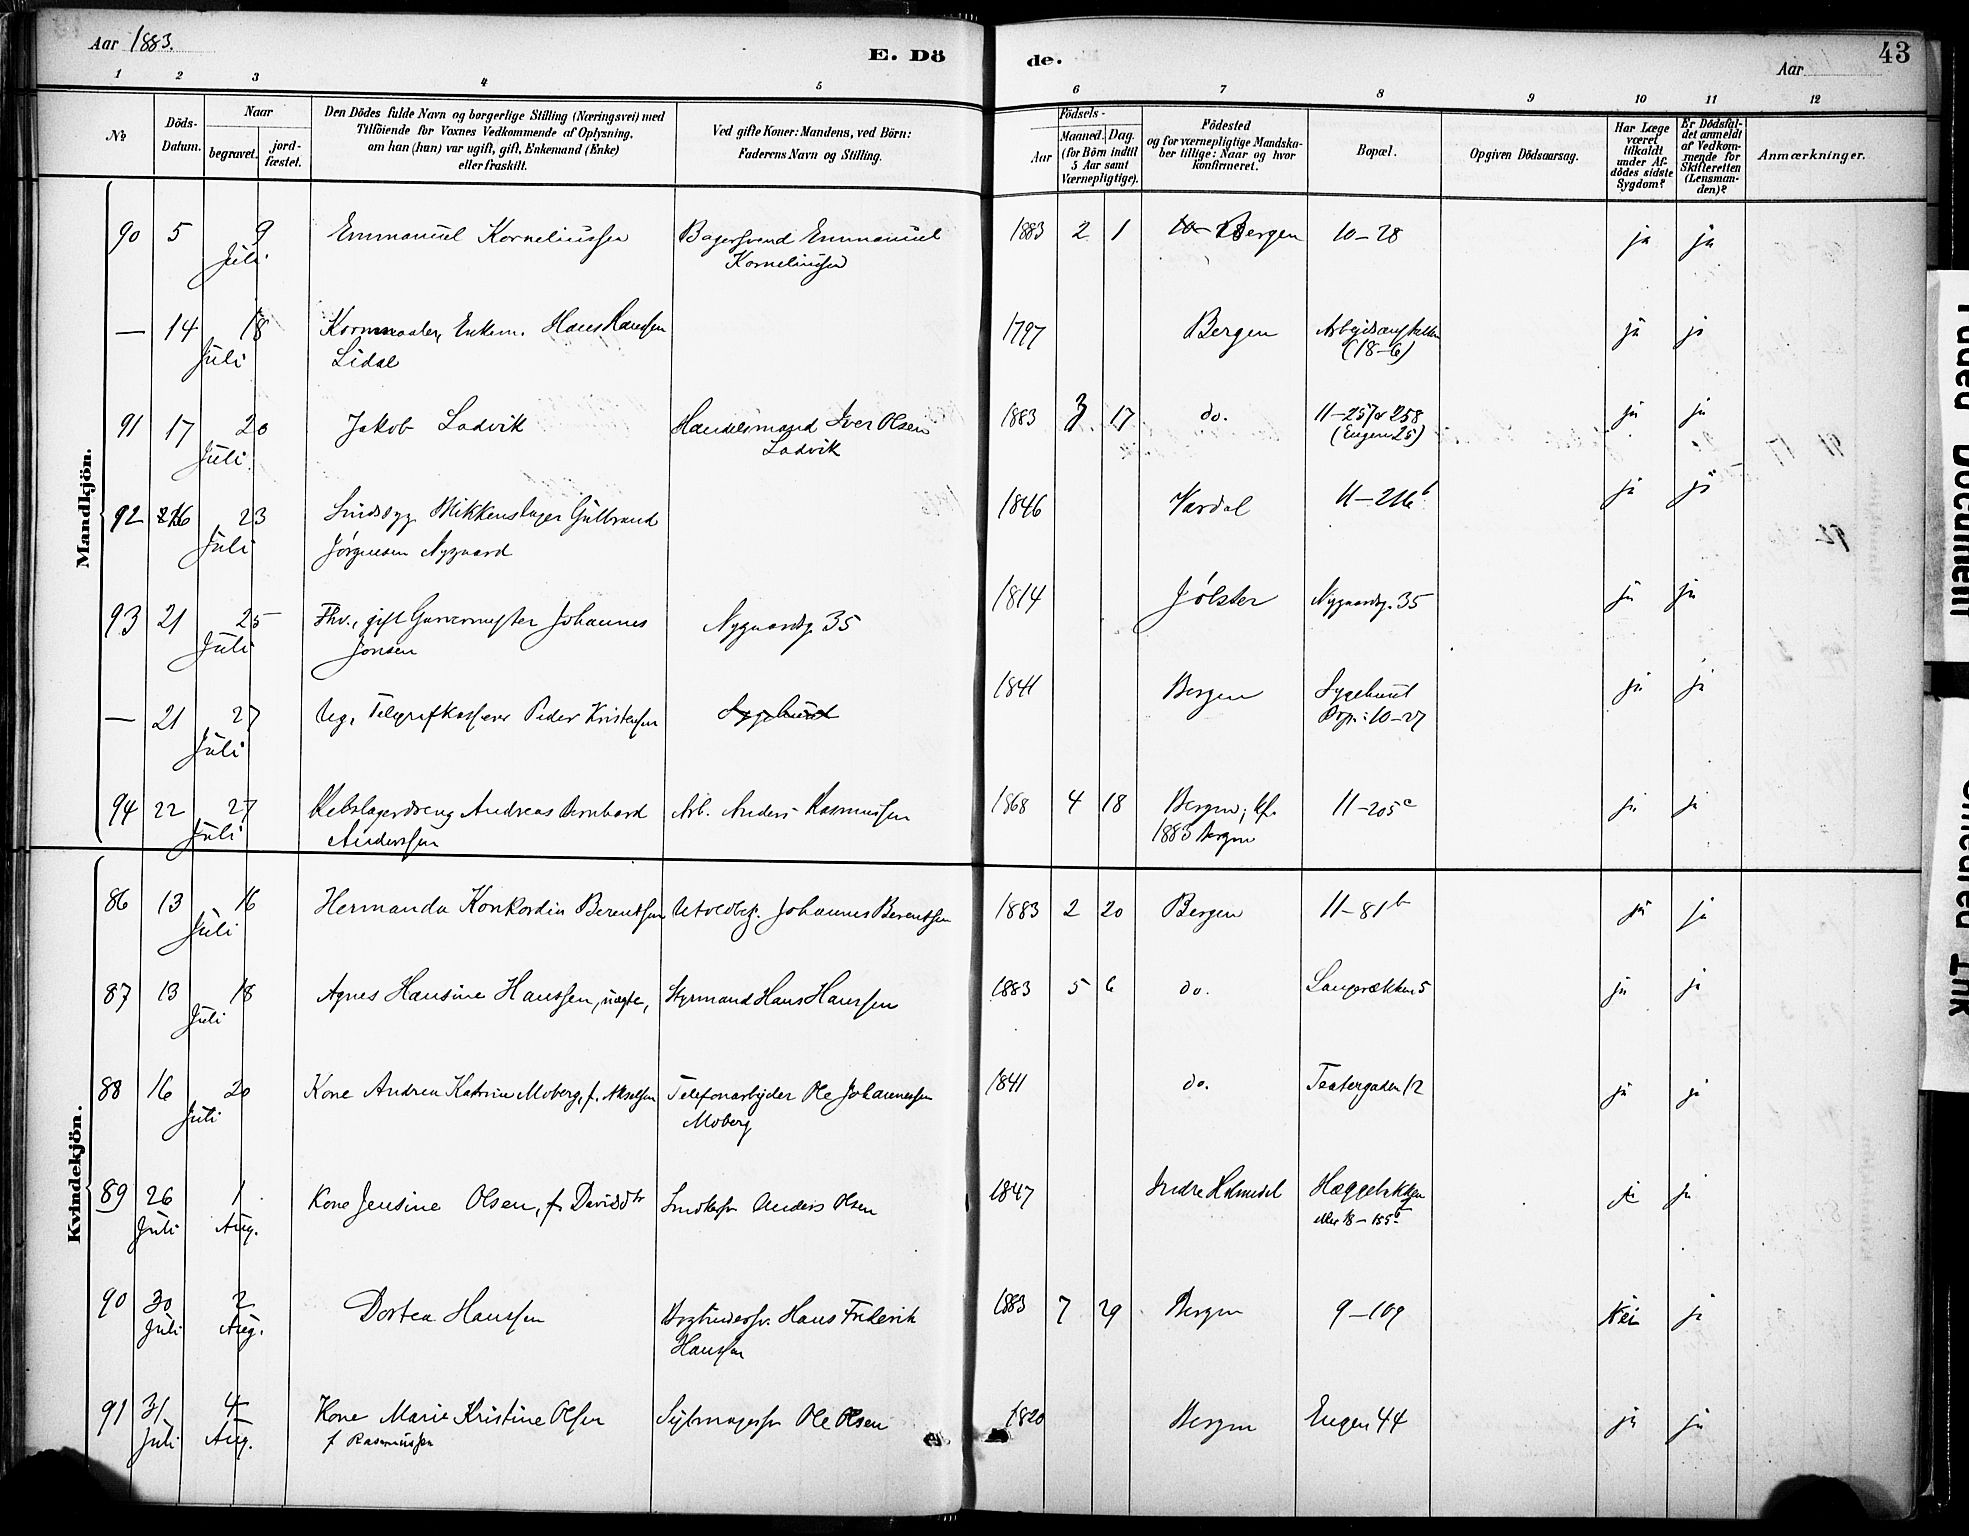 Aar 1883.
E. Dö
de.
Aar
43
1 2 3 4 5 6 7 8 9 10 11 12
№
Döds-Datum.
Naar
begravet.
jord-fæstet.
Den Dödes fulde Navn og borgerlige Stilling (Næringsvei) med
Tilföiende for Voxnes Vedkommende af Oplysning,
om han (hun) var ugift, gift, Enkemand (Enke)
eller fraskilt.
Ved gifte Koner: Mandens, ved Börn:
Faderens Navn og Stilling.
Födsels-
Aar
Maaned.
Dag.
(for Börn indtil
5 Aar samt
Værnepligtige).
Födested
og for værnepligtige Mandska-
ber tillige: Naar og hvor
konfirmeret.
Bopæl.
Opgiven Dödsaarsag.
Har Læge
været
tilkaldt
under Af-
dödes sidste
Sygdom?
Er Dödsfal-
det anmeldt
af Vedkom-
mende for
Skifteretten
(Lensman-
den)?
Anmærkninger.
Mandkjön.
90 5 9 Emmanuel Korneliussen Bagersvend Emmanuel 1883 2 1 Bergen 10-28 ja ja
Juli Korneliussen
— 14 18 Kornmaaler, Enkem. Hans Hanssen 1797 Bergen Arbeidsanstalten ja ja
Juli Lidal (18-6)
91 17 20 Jakob Ladvik Handelsmand Iver Olsen 1883 3 17 do. 11-257 258 ja ja
Juli Ladvik (Engen 25)
92 23 Sindssyg Blikkenslager Gulbrand 1846 Vardal 11-216 b ja ja
Juli Jörgensen Nygaard
93 21 25 Fhv., gift Johannes Nygaardsg. 35 1814 Jölster Nygaardsg. 35 ja ja
Juli Jonsen
— 21 27 Ug. Telegrafkasserer Peder Kristensen Sygehuset 1841 Bergen Sygehuset ja ja
Juli 10-27
94 22 27 Rebslagerdreng Andreas Bernhard Arb. Anders Rasmussen 1868 4 18 Bergen; kf. 11-205 c ja ja
Juli Anderssen 1883 Bergen
Kvindekjön.
86 13 16 Hermanda Konkordia Berentsen Johannes Berentsen 1883 2 20 Bergen 11-81 b ja ja
Juli
87 13 18 Agnes Hansine Hanssen, uægte, Styrmand Hans Hanssen 1883 5 6 do. Langerækken 5 ja ja
Juli
88 16 20 Kone Andrea Katrine Moberg, f. Akselsen Telefonarbeider Ole Johannessen 1841 do. Teatergaden 12 ja ja
Juli Moberg
89 26 1 Kone Jensine Olsen, f. Davidsdtr Anders Olsen 1847 Indre Holmedal ja ja
Juli Aug. eller 18-155 b
90 30 2 Dortea Hanssen Hans Frederik 1883 7 29 Bergen 9-109 Nei ja
Juli Aug. Hanssen
91 31 4 Kone Marie Kristine Olsen Ole Olsen 1820 Bergen Engen 44 ja ja
Juli Aug. f Rasmussen